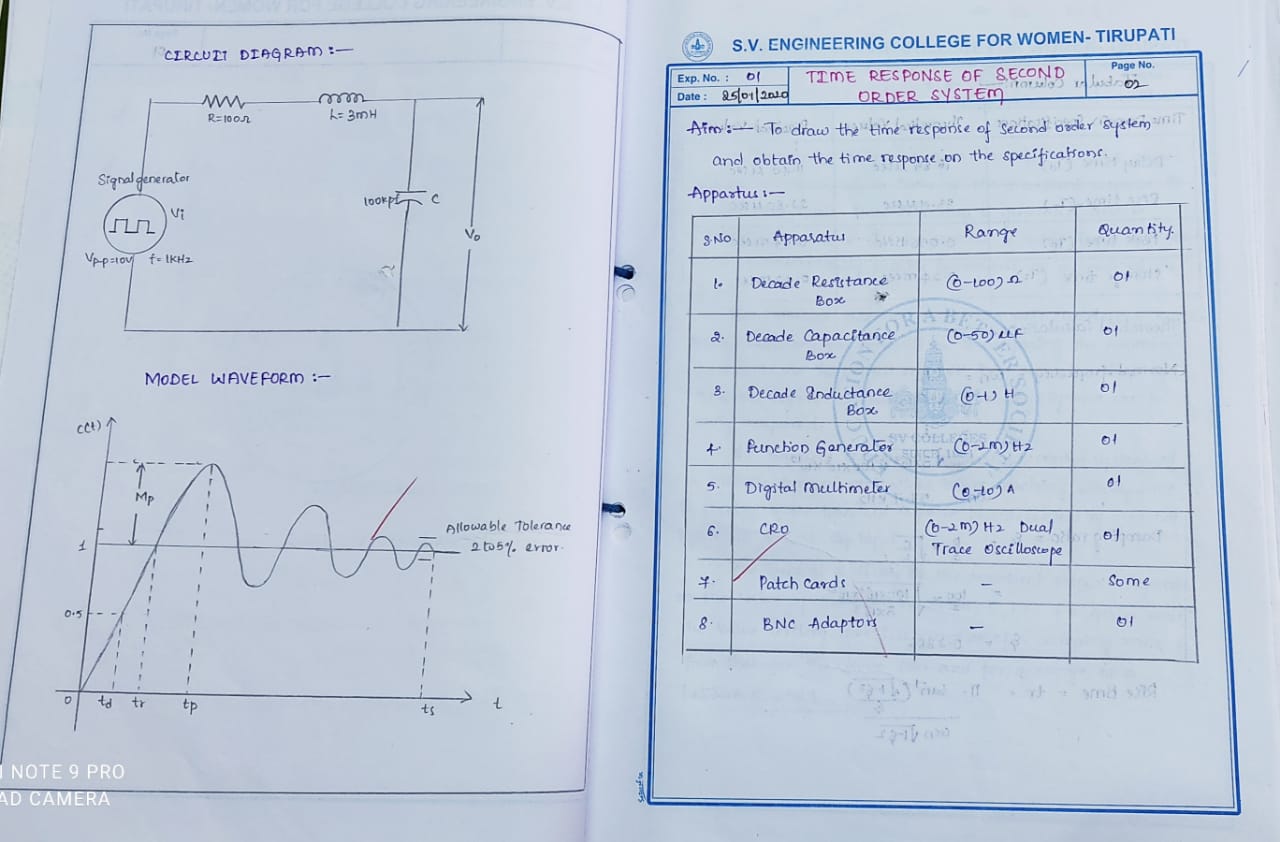 CIRCUIT DIAGRAM :-
R=100Ω
L= 3mH
Signal generator
Vi
Vp-p=10V f= 1KHz
100KPf C
Vo
MODEL WAVEFORM :-
c(t)
Mp
1
0.5
Allowable Tolerance
2 to 5% error.
0 td tr tp ts t
NOTE 9 PRO
AD CAMERA
S.V. ENGINEERING COLLEGE FOR WOMEN- TIRUPATI
Exp. No. : 01
Date : 25/01/2020
TIME RESPONSE OF SECOND
ORDER SYSTEM
Page No.
02
Aim :- To draw the time response of second order system
and obtain the time response on the specifications.
Appartus :-
S.No Apparatus Range Quantity.
1. Decade Resistance (0-100) Ω 01
Box
2. Decade Capacitance (0-50) μF 01
Box
3. Decade Inductance (0-1) H 01
Box
4. Function Generator (0-2M) Hz 01
5. Digital Multimeter (0-10) A 01
6. CRO (0-2M) Hz Dual 01
Trace Oscilloscope
7. Patch Cards - Some
8. BNC Adaptors - 01